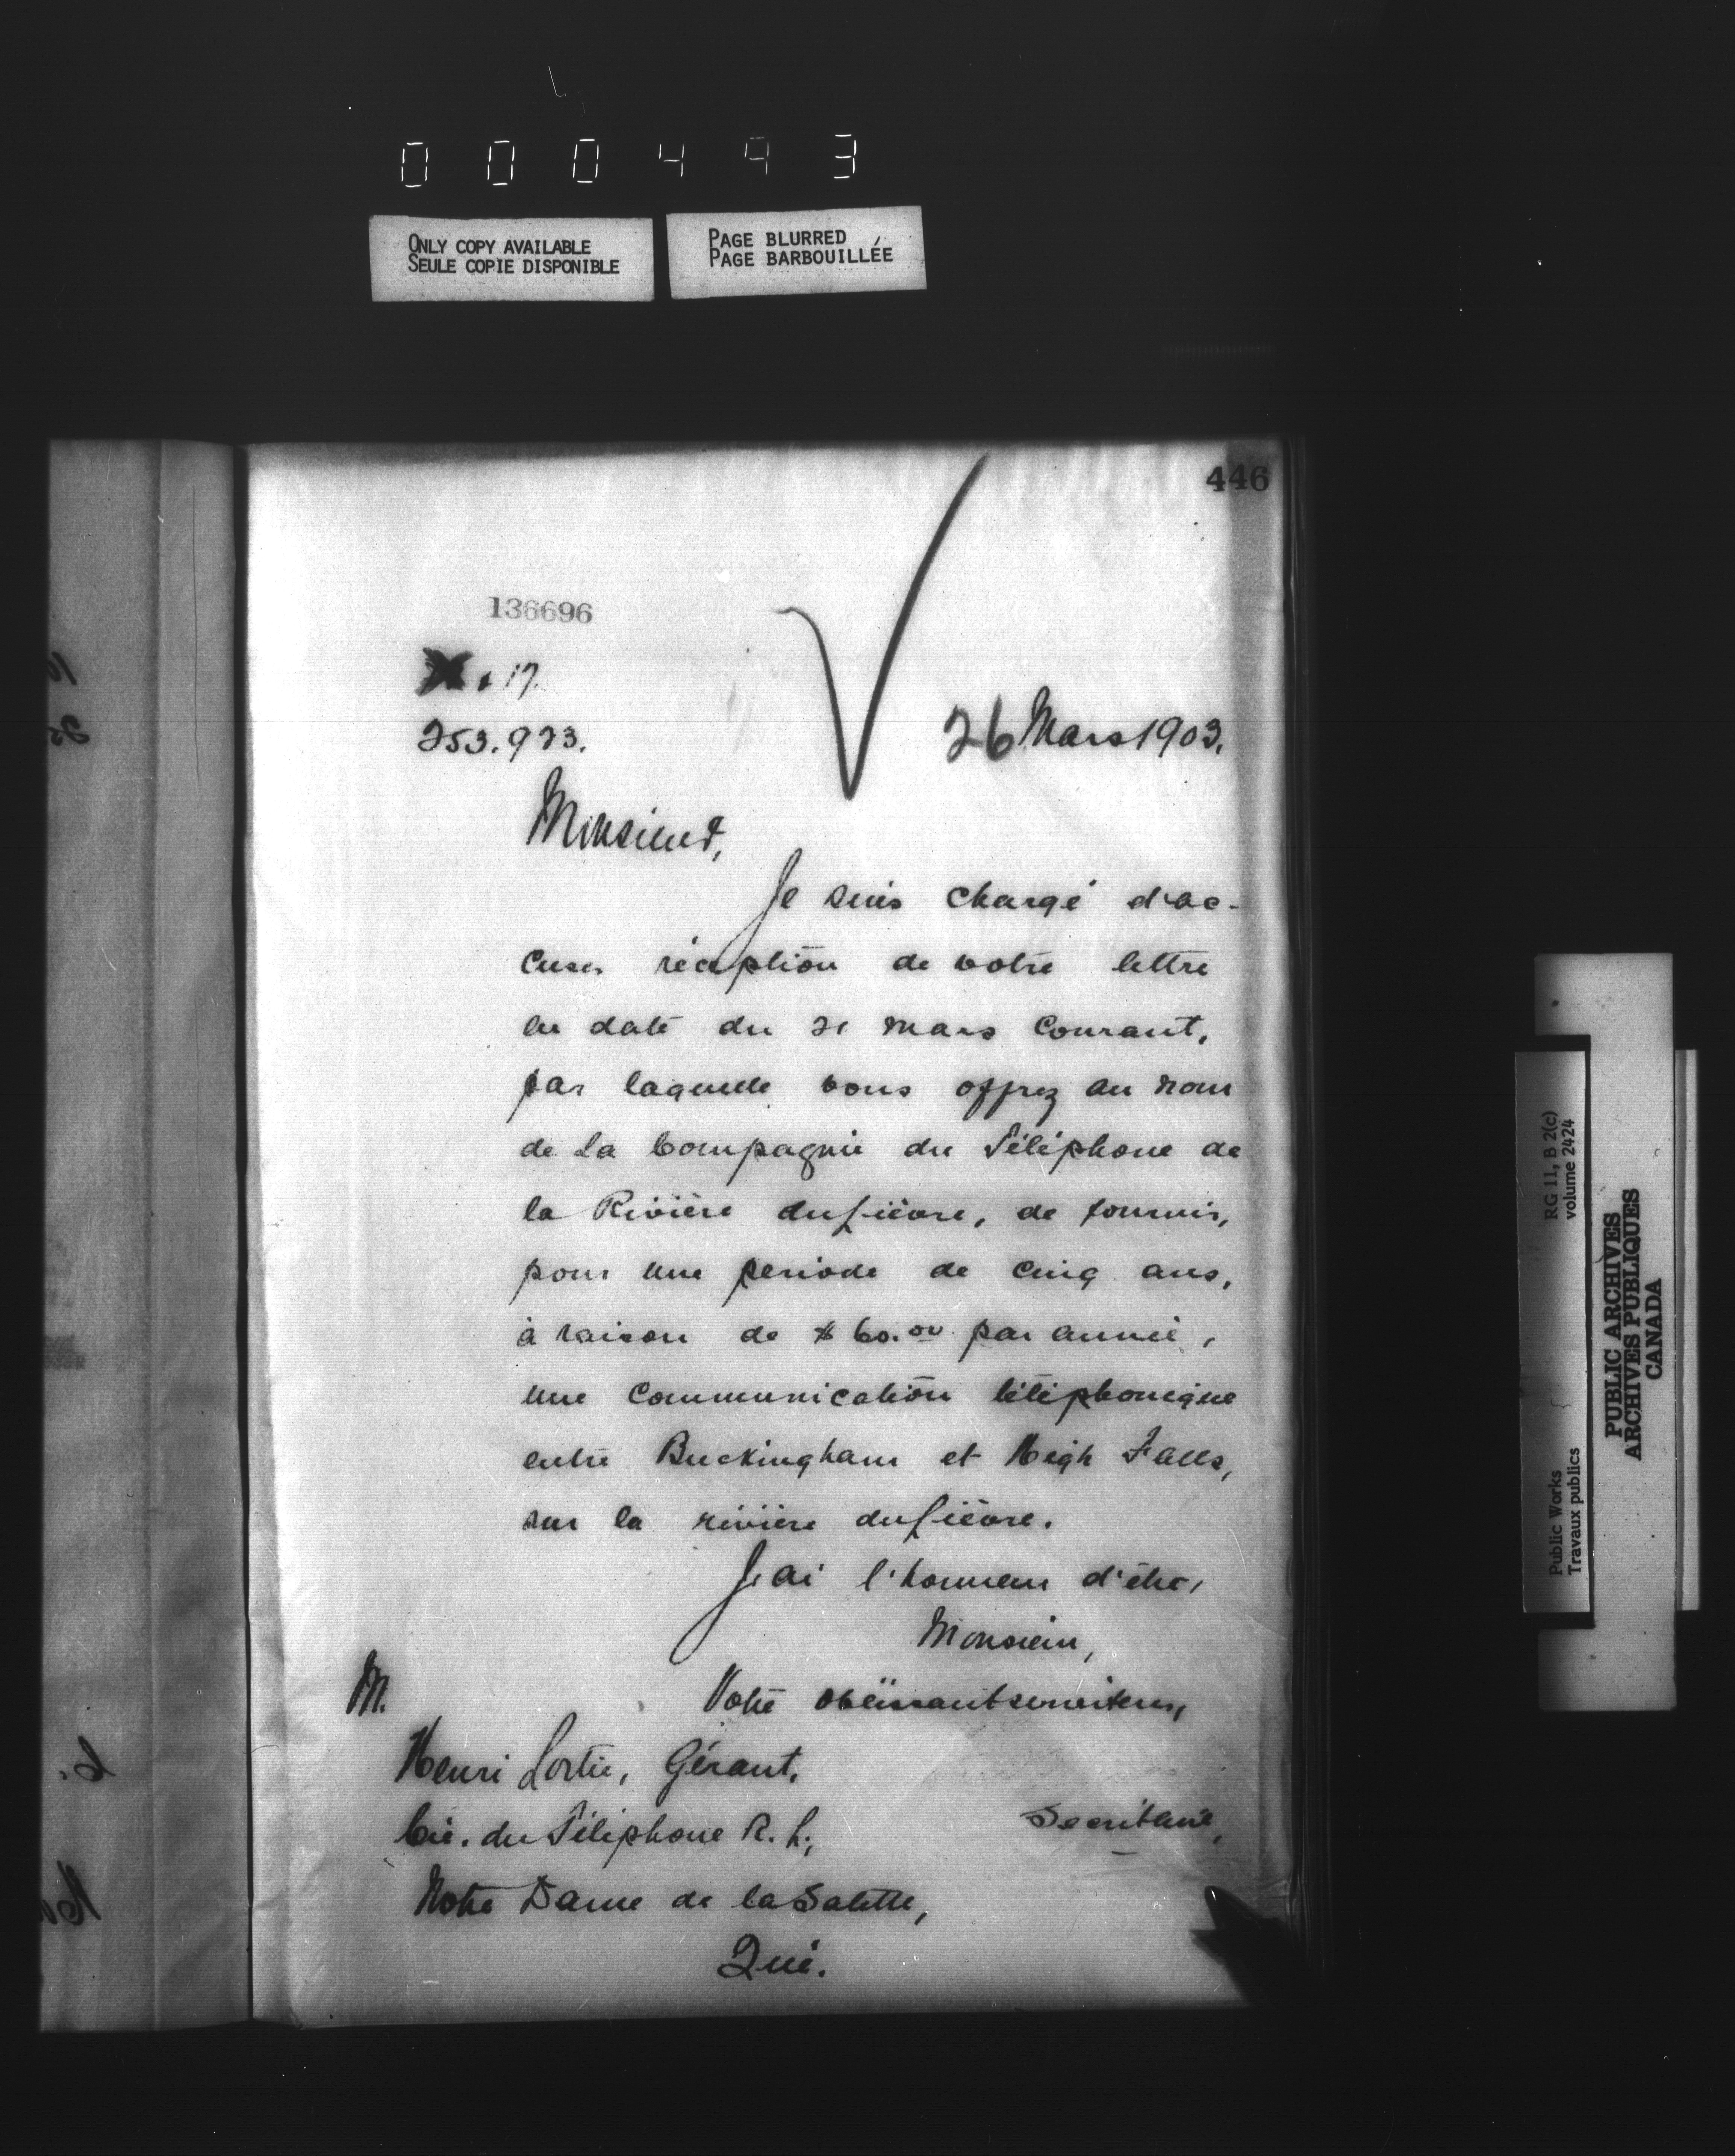 000493
ONLY COPY AVAILABLE
SEULE COPIE DISPONIBLE
PAGE BLURRED
PAGE BARBOUILLÉE
446
136696
17.
253.973.
26 Mars 1903.
Monsieur,
Je suis chargé d'ac-
cuser réception de votre lettre
en date du 21 mars courant,
par laquelle vous offrez au nom
de La Compagnie du Téléphone de
la Rivière du Lièvre, de fournir,
pour une periode de cinq ans,
à raison de $60.00 par année,
une communication téléphonique
entre Buckingham et High Falls,
sur la rivière du Lièvre.
J'ai l'honneur d'être,
Monsieur,
Votre obéissant serviteur,
Secrétaire,
M.
Henri Lortie, Gérant,
Cie. du Téléphone R. L.,
Notre Dame de la Salette,
Qué.
Public Works
Travaux publics
RG 11, B 2(c)
volume 2424
PUBLIC ARCHIVES
ARCHIVES PUBLIQUES
CANADA